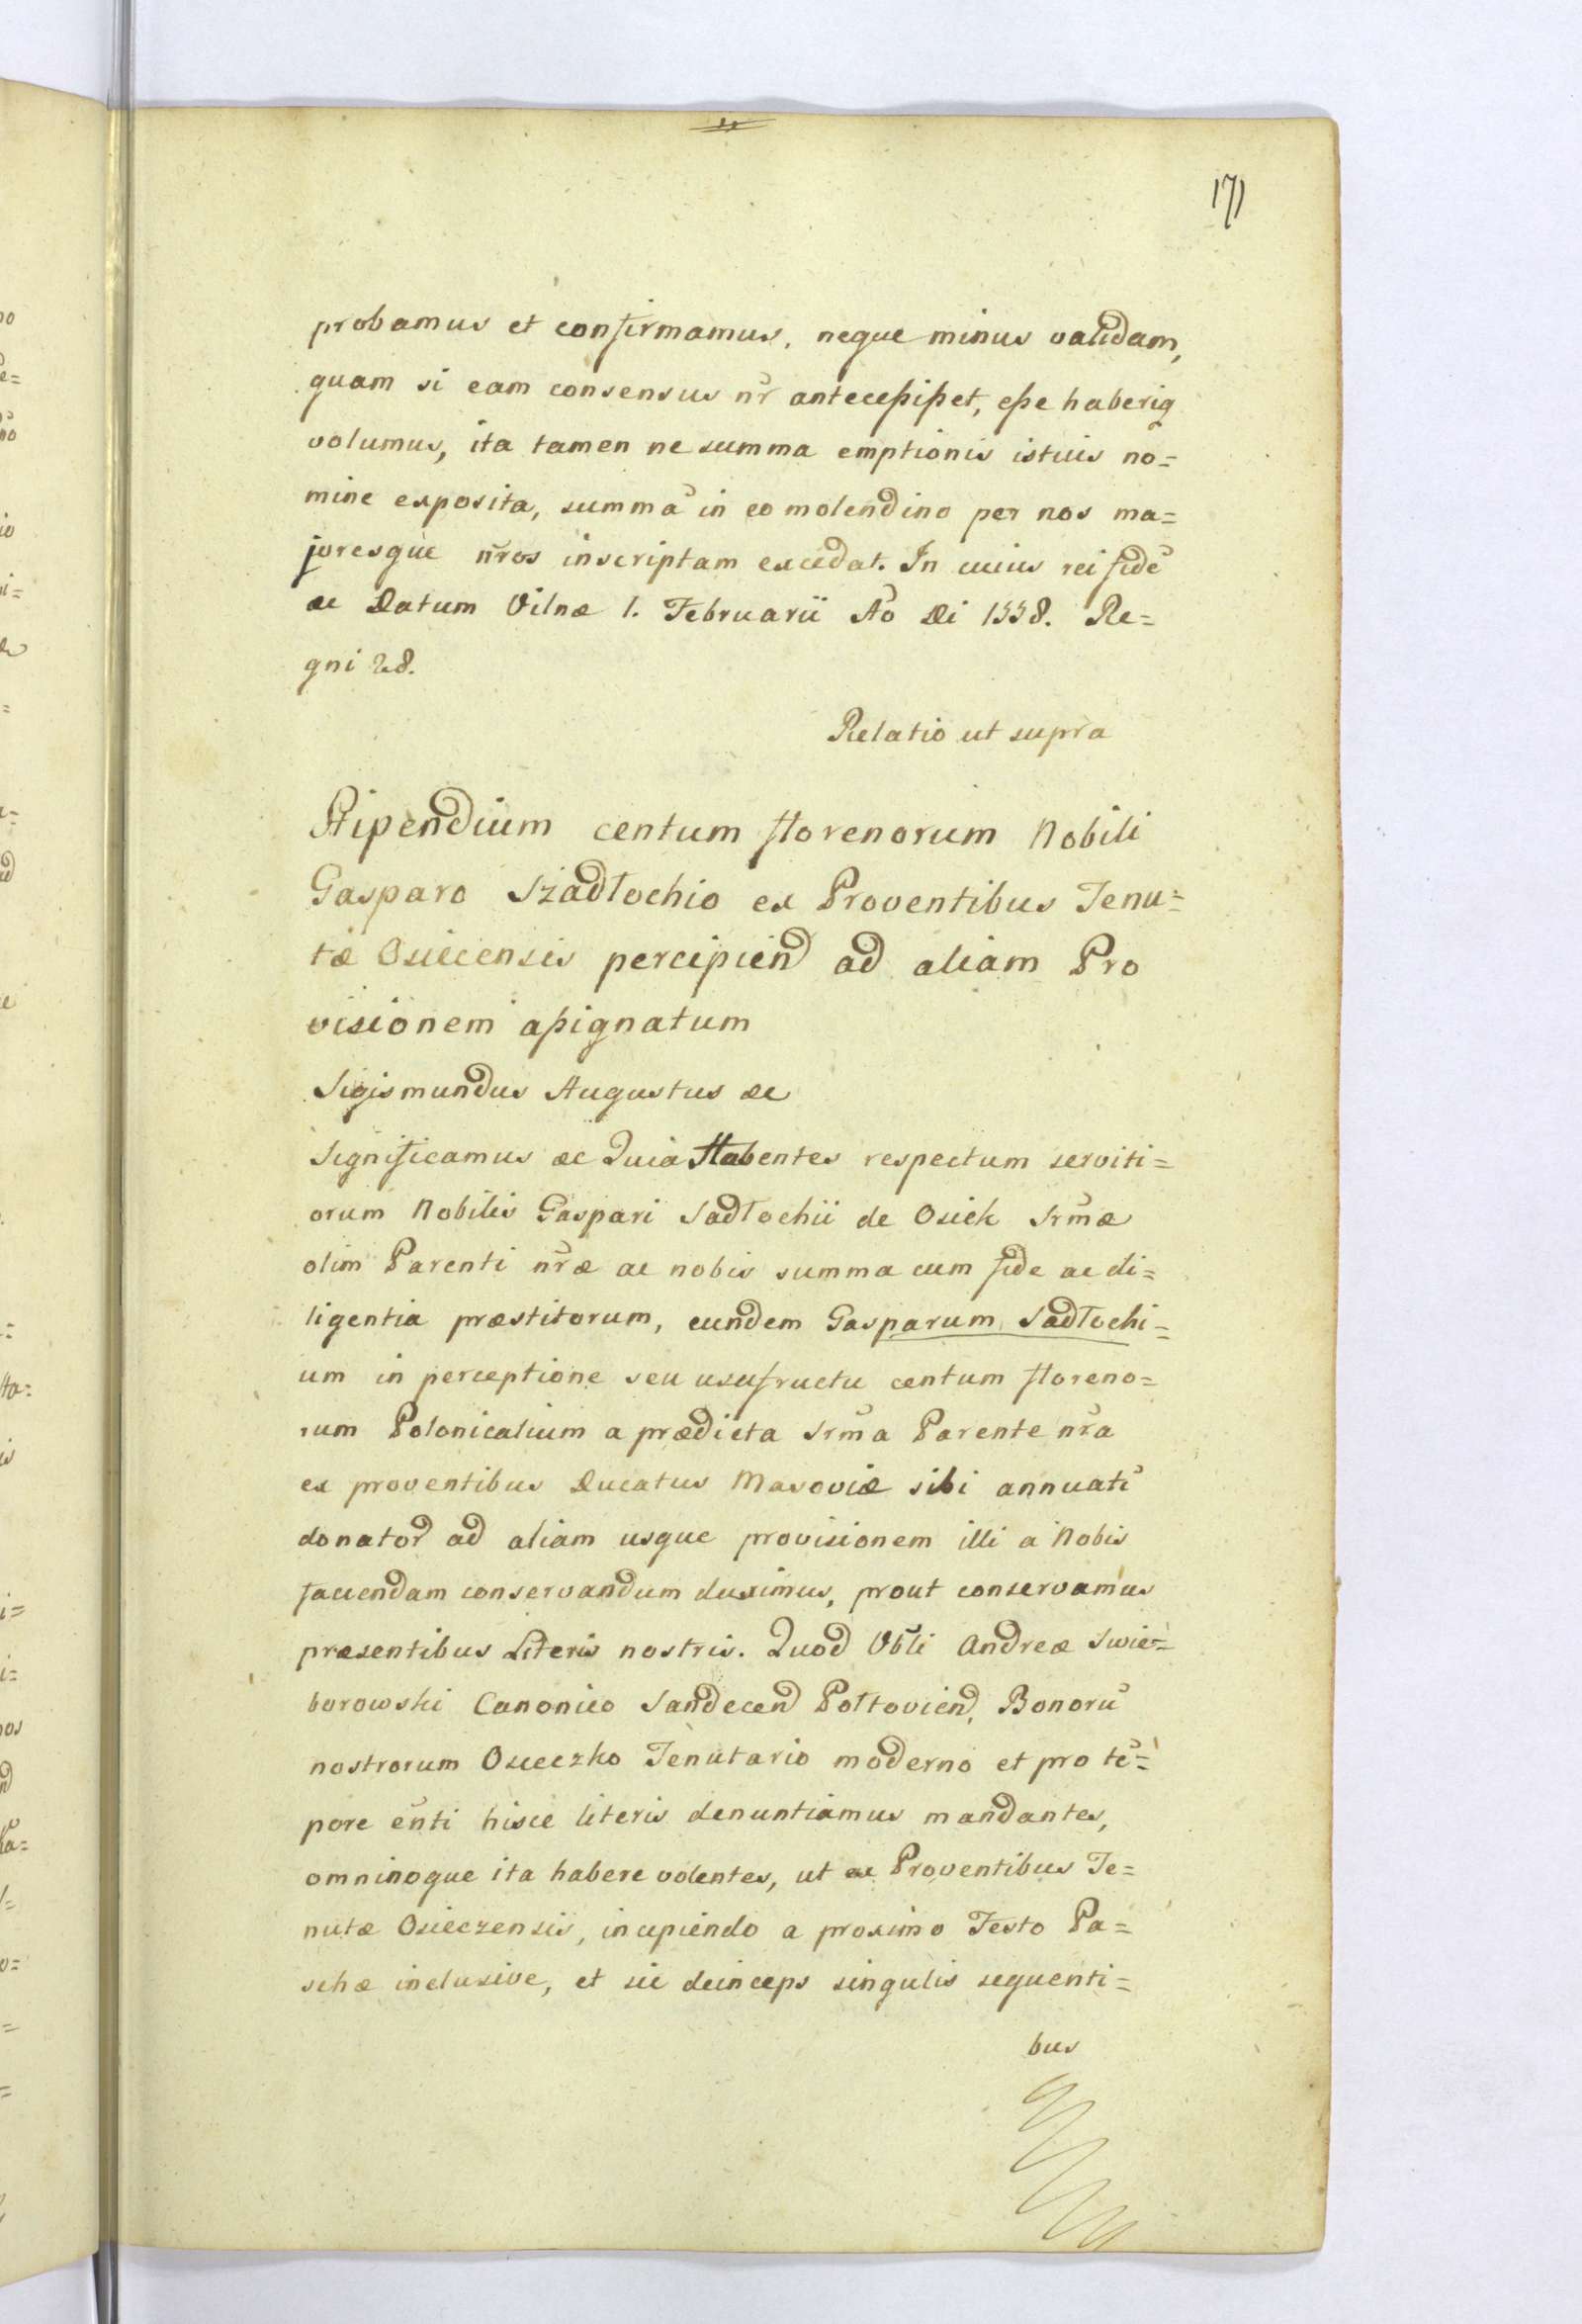 171
probamus et confirmamus, neque minus validam,
quam si eam consensus nr̃ antecessisset, esse haberiq̃
volumus, ita tamen ne summa emptionis istius no=
mine exposita, summã in eo molendino per nos ma=
joresque nr̃os inscriptam excedat. In cuius rei fidẽ
&c Datum Vilnæ 1. Februarii Aõ Di 1558. Re=
gni 28.
Relatio ut supra
Stipendium centum florenorum Nobili
Gasparo Szadłochio ex Proventibus Tenu=
tæ Osiecensis percipiend ad aliam Pro
visionem assignatum
Sigismundus Augustus &c
Significamus &c Quia Habentes respectum serviti=
orum Nobilis Gaspari Sadłochii de Osiek Srmæ̃
olim Parenti nr̃æ ac nobis summa cum fide ac di=
ligentia præstitorum, eundem Gasparum Sadłochi=
um in perceptione seu usufructu centum floreno=
rum Polonicalium a prædicta Srm̃a Parente nr̃a
ex proventibus Ducatus Masoviæ sibi annuatĩ
donator̃ ad aliam usque provisionem illi a Nobis
faciendam conservandum duximus, prout conservamus
præsentibus Literis nostris. Quod Vbli Andreæ Swie=
borowski Canonico Sandecen̄ Połtovien̄, Bonorũ
nostrorum Osieczko Tenutario moderno et pro tẽ=
pore ẽnti hisce literis denuntiamus mandantes,
omninoque ita habere volentes, ut ex Proventibus Te=
nutæ Osieczensis, incipiendo a proximo Festo Pa=
schæ inclusive, et sic deinceps singulis sequenti=
bus